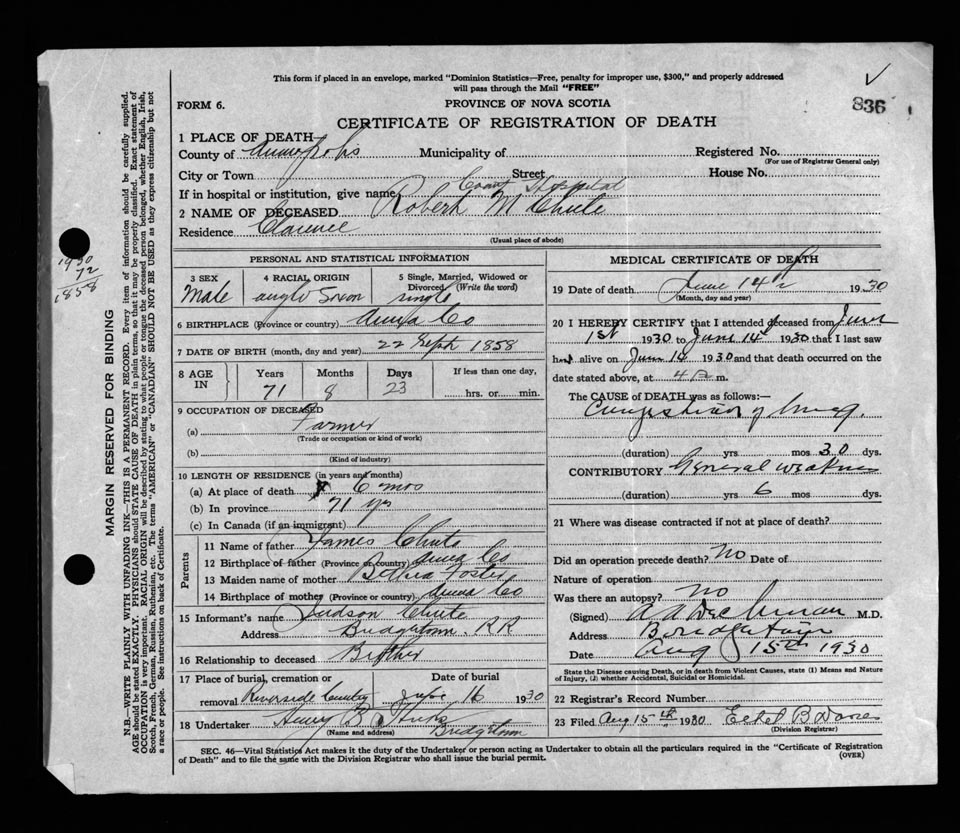 This form if placed in an envelope, marked "Dominion Statistics—Free, penalty for improper use, $300," and properly addressed
will pass through the Mail "FREE"
836
FORM 6.
PROVINCE OF NOVA SCOTIA
CERTIFICATE OF REGISTRATION OF DEATH
1 PLACE OF DEATH
County of Annapolis Municipality of Registered No.
(For use of Registrar General only)
City or Town Street House No.
If in hospital or institution, give name County Hospital
2 NAME OF DECEASED Robert M Chute
Residence Clarence
(Usual place of abode)
PERSONAL AND STATISTICAL INFORMATION
3 SEX 4 RACIAL ORIGIN 5 Single, Married, Widowed or
Divorced (Write the word)
Male anglo Saxon single
6 BIRTHPLACE (Province or country) Anna Co
7 DATE OF BIRTH (month, day and year) 22 Sept 1858
8 AGE IN Years Months Days If less than one day,
71 8 23 hrs. or min.
9 OCCUPATION OF DECEASED
(a) Farmer
(Trade or occupation or kind of work)
(b)
(Kind of industry)
10 LENGTH OF RESIDENCE (in years and months)
(a) At place of death 6 mos
(b) In province 71 yrs
(c) In Canada (if an immigrant)
Parents
11 Name of father James Chute
12 Birthplace of father (Province or country) Anna Co
13 Maiden name of mother Bethia Foster
14 Birthplace of mother (Province or country) Anna Co
15 Informant's name Judson Chute
Address Bridgetown RR
16 Relationship to deceased Brother
17 Place of burial, cremation or Date of burial
removal Riverside Cemetery June 16 1930
18 Undertaker Henry B Hicks
(Name and address) Bridgetown
MEDICAL CERTIFICATE OF DEATH
19 Date of death June 14th 1930
(Month, day and year)
20 I HEREBY CERTIFY that I attended deceased from June
1st 1930 to June 14 1930 that I last saw
him alive on June 14 1930 and that death occurred on the
date stated above, at 4 m.
The CAUSE of DEATH was as follows:—
Congestion of lung.
(duration) yrs mos 30 dys.
CONTRIBUTORY General weakness
(duration) yrs 6 mos dys.
21 Where was disease contracted if not at place of death?
Did an operation precede death? No Date of
Nature of operation
Was there an autopsy? No
(Signed) M.D.
Address Bridgetown
Date Aug 15th 1930
State the Disease causing Death, or in death from Violent Causes, state (1) Means and Nature
of Injury, (2) whether Accidental, Suicidal or Homicidal.
22 Registrar's Record Number
23 Filed Aug 15th 1930 Ethel B
(Division Registrar)
SEC. 46—Vital Statistics Act makes it the duty of the Undertaker or person acting as Undertaker to obtain all the particulars required in the "Certificate of Registration
of Death" and to file the same with the Division Registrar who shall issue the burial permit.
(OVER)
1930
72
1858
MARGIN RESERVED FOR BINDING
N.B.—WRITE PLAINLY WITH UNFADING INK—THIS IS A PERMANENT RECORD. Every item of information should be carefully supplied.
AGE should be stated EXACTLY. PHYSICIANS should STATE CAUSE OF DEATH in plain terms, so that it may be properly classified. Exact statement of
OCCUPATION is very important. RACIAL ORIGIN will be described by stating to what people or tongue the deceased person belonged, whether English, Irish,
Scotch, French, German, Russian, Ruthenian, etc. The terms "AMERICAN" or "CANADIAN" SHOULD NOT BE USED as they express citizenship but not
a race or people. See instructions on back of Certificate.